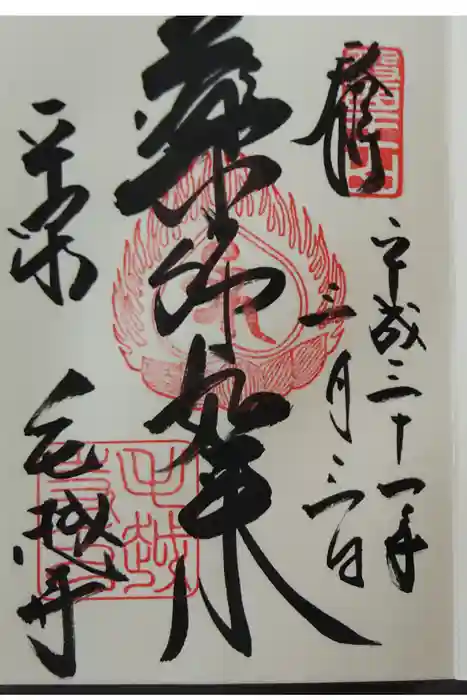 奉拝
平成三十一年
三月三日
薬師如来
平泉
毛越寺